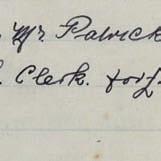 Mr. Patrick
Clerk. for £